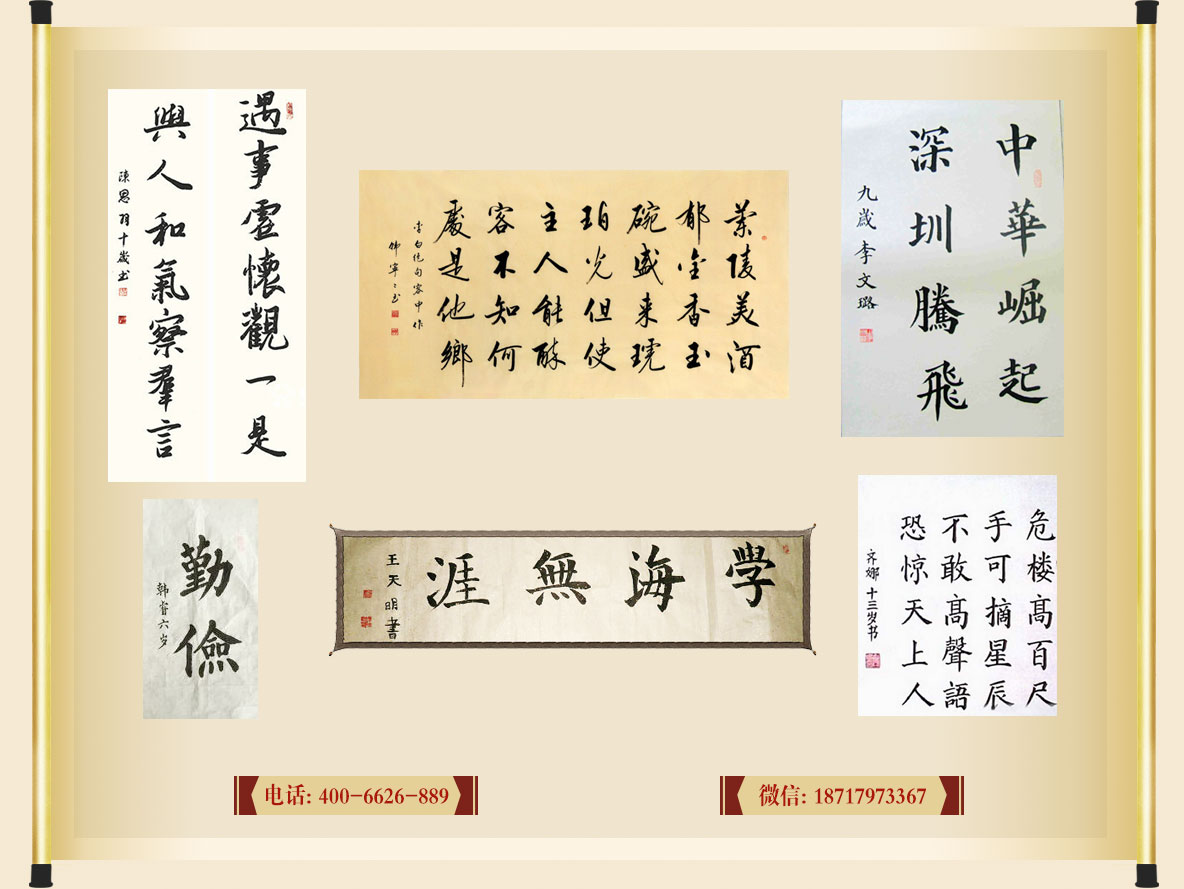 遇事虚懷觀一是
與人和氣察羣言
陳思羽十歲书
蘭陵美酒
郁金香玉
碗盛来琥
珀光但使
主人能醉
客不知何
處是他鄉
李白绝句客中作
韩寧〻书
中華崛起
深圳騰飛
九歲李文璐
勤儉
韩睿六岁
學海無涯
王天明書
危楼高百尺
手可摘星辰
不敢高聲語
恐惊天上人
齐娜十三岁书
电话: 400-6626-889
微信: 18717973367